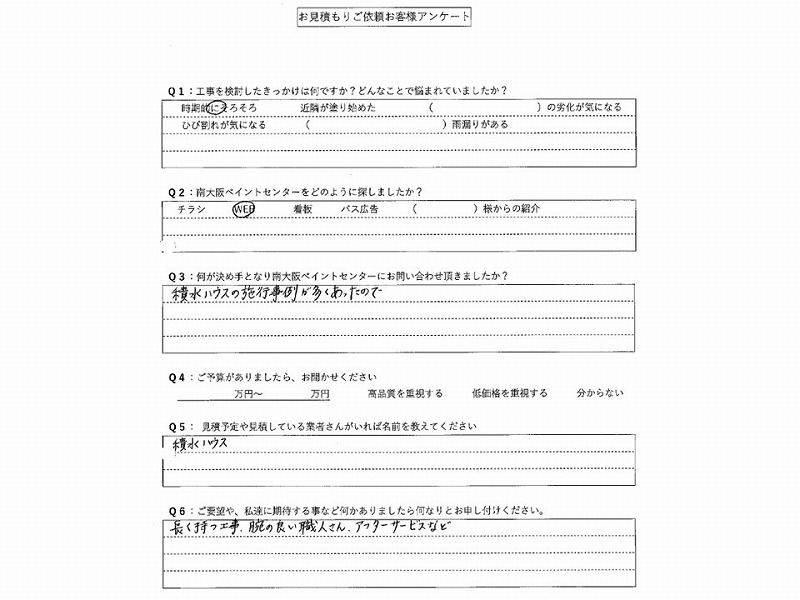 お見積もりご依頼お客様アンケート
Q1：工事を検討したきっかけは何ですか？どんなことで悩まれていましたか？
時期的にそろそろ 近隣が塗り始めた （ ）の劣化が気になる
ひび割れが気になる （ ）雨漏りがある
Q2：南大阪ペイントセンターをどのように探しましたか？
チラシ WEB 看板 バス広告 （ ）様からの紹介
Q3：何が決め手となり南大阪ペイントセンターにお問い合わせ頂きましたか？
積水ハウスの施行事例が多くあったので
Q4：ご予算がありましたら、お聞かせください
万円～ 万円 高品質を重視する 低価格を重視する 分からない
Q5： 見積予定や見積している業者さんがいれば名前を教えてください
積水ハウス
Q6：ご要望や、私達に期待する事など何かありましたら何なりとお申し付けください。
長く持つ工事、腕の良い職人さん、アフターサービスなど